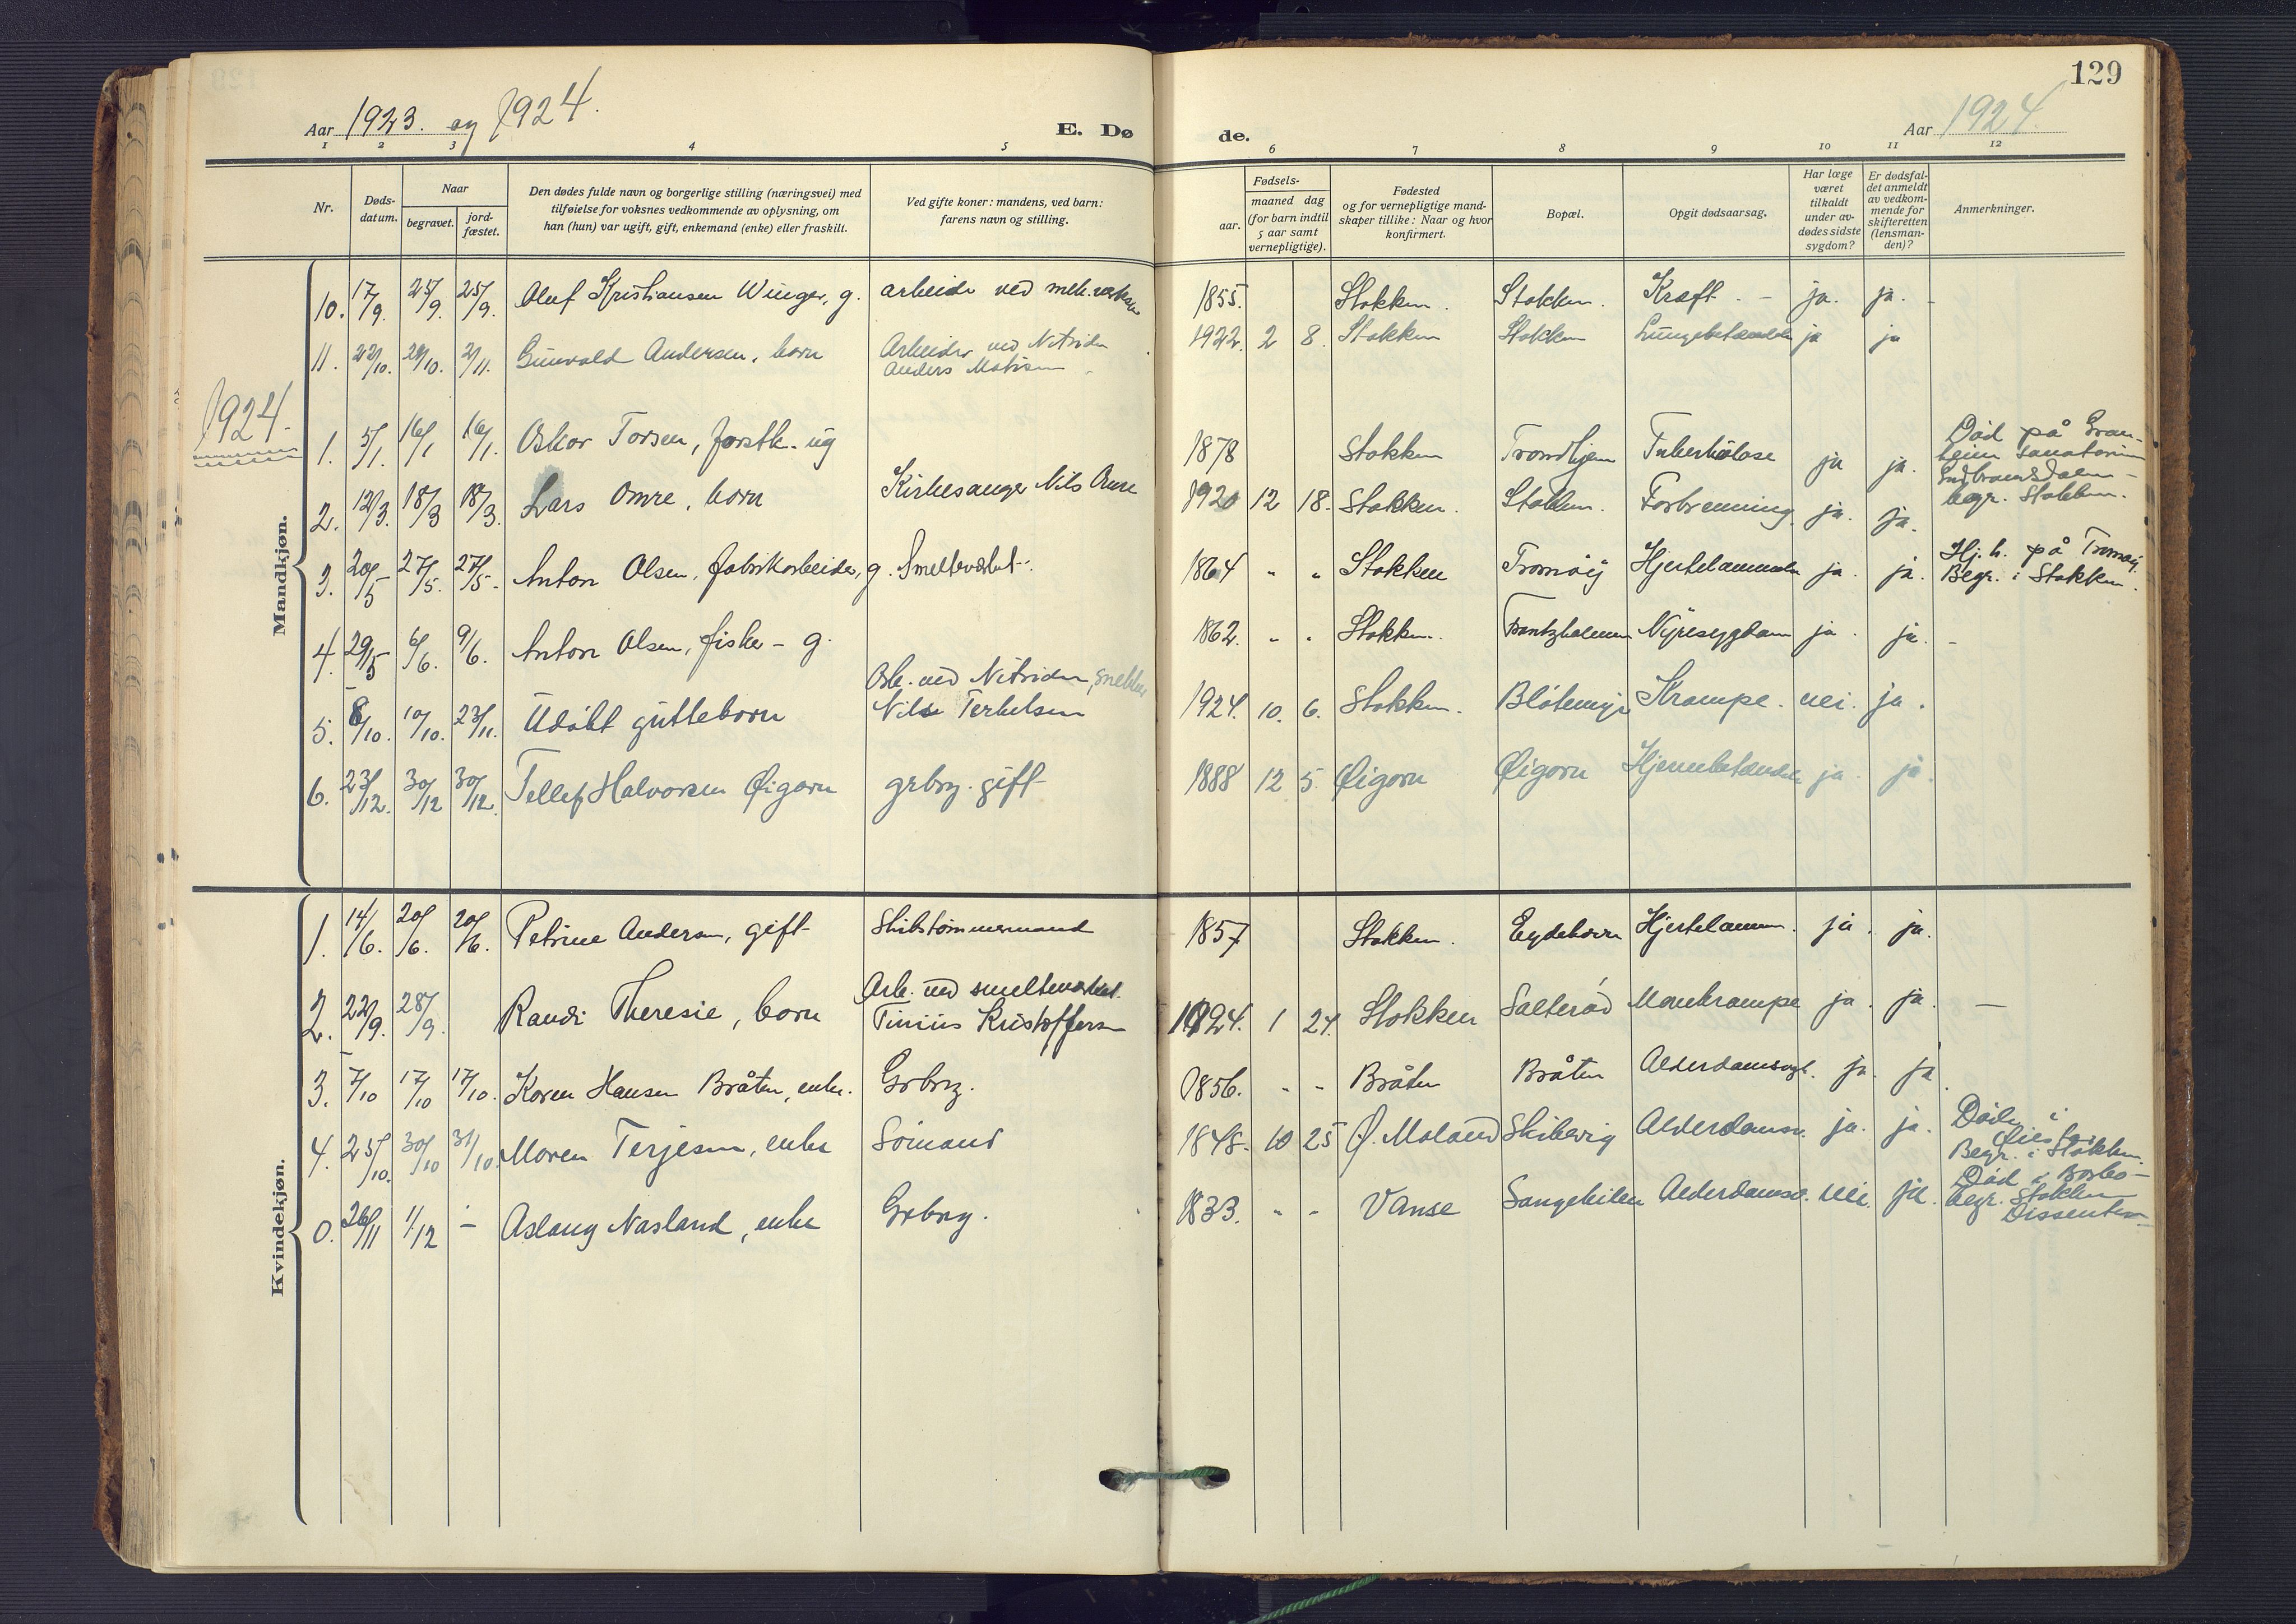 129
Aar 1923. og 1924.
E. Dø
de.
Aar 1924.
1 2 3 4 5 6 7 8 9 10 11 12
Nr.
Døds-
datum.
Naar
begravet.
jord-
fæstet.
Den dødes fulde navn og borgerlige stilling (næringsvei) med
tilføielse for voksnes vedkommende av oplysning, om
han (hun) var ugift, gift, enkemand (enke) eller fraskilt.
Ved gifte koner: mandens, ved barn:
farens navn og stilling.
Fødsels-
aar.
maaned dag
(for barn indtil
5 aar samt
vernepligtige).
Fødested
og for vernepligtige mand-
skaper tillike: Naar og hvor
konfirmert.
Bopæl.
Opgit dødsaarsag.
Har læge
været
tilkaldt
under av-
dødes sidste
sygdom?
Er dødsfal-
det anmeldt
av vedkom-
mende for
skifteretten
(lensman-
den)?
Anmerkninger.
Mandkjøn.
10. 17/9. 25/9. 25/9. Oluf Kristiansen Winger, g. arbeide ved mek. 1855. Stokken. Stokken. Kræft. - ja. ja. -
11. 22/10. 10. 2/11. Gunvald Andersen, barn Arbeider ved Nitriden 1922. 2 8. Stokken Stokken Lungebetændelse ja ja
Anders
1924.
1. 5/1. 16/1 16/1. Oskar Torsen, forstk. ug 1878 Stokken Trondhjem Tuberkulose ja ja. Död på Gran-
heim Sanatorium
Gudbrandsdalen -
begr. Stokken.
2. 12/3. 18/3 18/3. Lars Omre, barn Kirkesanger Nils Omre 1920 12 18. Stokken. Stokken. Forbrenning. ja. ja.
3. 20/5 27/5. 27/5. Anton Olsen, fabrikarbeider, g. Smelteverket. 1864 " " Stokken Tromöy Hjertelammelse ja. ja. Hj. h. på Tromöy.
Begr. i Stokken.
4. 29/5 6/6. 9/6. Anton Olsen, fisker - g. 1862. " " Stokken. Frantzholmen Nyresygdom ja. ja. -
5. 8/10. 10/10. 23/11. Udöbt guttebarn Arb. ved Nitriden, snekker
Nils Terkelsen 1924. 10. 6. Stokken. Blötemyr Krampe. nei. ja.
6. 23/12. 30/12 30/12. Tellef Halvorsen Øigarn grbrg. gift 1888 12 5. Øigarn Øigarn Hjernebetændelse ja. ja.
Kvindekjøn.
1. 14/6. 20/6. 20/6. Petrine Andersen, gift Skibstömmermand 1857 Stokken. Eydehavn Hjertelamm. ja. ja.
2. 22/9. 28/9. Randi Theresie, barn Arb. ved smelteverket.
Tinius Kristoffersen 1924. 1 24. Stokken Salteröd Mavekrampe ja. ja. -
3. 7/10 17/10 17/10. Karen Hansen Bråten, enke. Grbrg. 1856. " - Bråten Bråten Alderdomssvgh. ja. ja.
4. 25/10. 30/10 31/10. Maren Terjesen, enke Sömand 1848. 10 25 Ø. Moland Skibevig Alderdomsv. ja. ja. Död i
Öiestad
Begr. i Stokken.
0. 26/11 1/12 - Aslaug Nasland, enke Grbrg. 1833. " - Vanse Songekilen Alderdomsv. nei. ja. Död i Borbo -
begr. Stokken
Dissenter